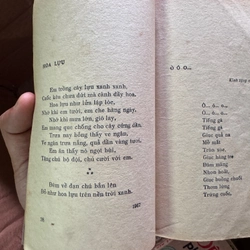 HOA LỰU
Em trồng cây lựu xanh xanh,
Cuốc kêu chưa dứt mà cành đầy hoa.
Hoa lựu như lửa lập lòe,
Nhớ khi nắng lửa, em che hàng ngày.
Nhớ khi mưa lớn, gió lay,
Em mang que chống cho cây cứng dần.
Trưa nay bỗng thấy ve ngân,
Ve ngân trưa nắng, quả dần vàng tươi.
Em ăn thấy nó ngọt bùi,
Tặng chú bộ đội, chú cười với em.
Đêm về đan chú hẳn lên
Đỏ như hoa lựu trên nền trời xanh.
1967
Ò Ó O...
Ò... ó... o...
Ò... ó... o...
Tiếng gà
Tiếng gà
Giục quả na
Mở mắt
Tròn xoe.
Giục hàng tre
Đâm măng
Nhọn hoắt.
Giục buồng chuối
Thơm lừng
Trứng cuốc.